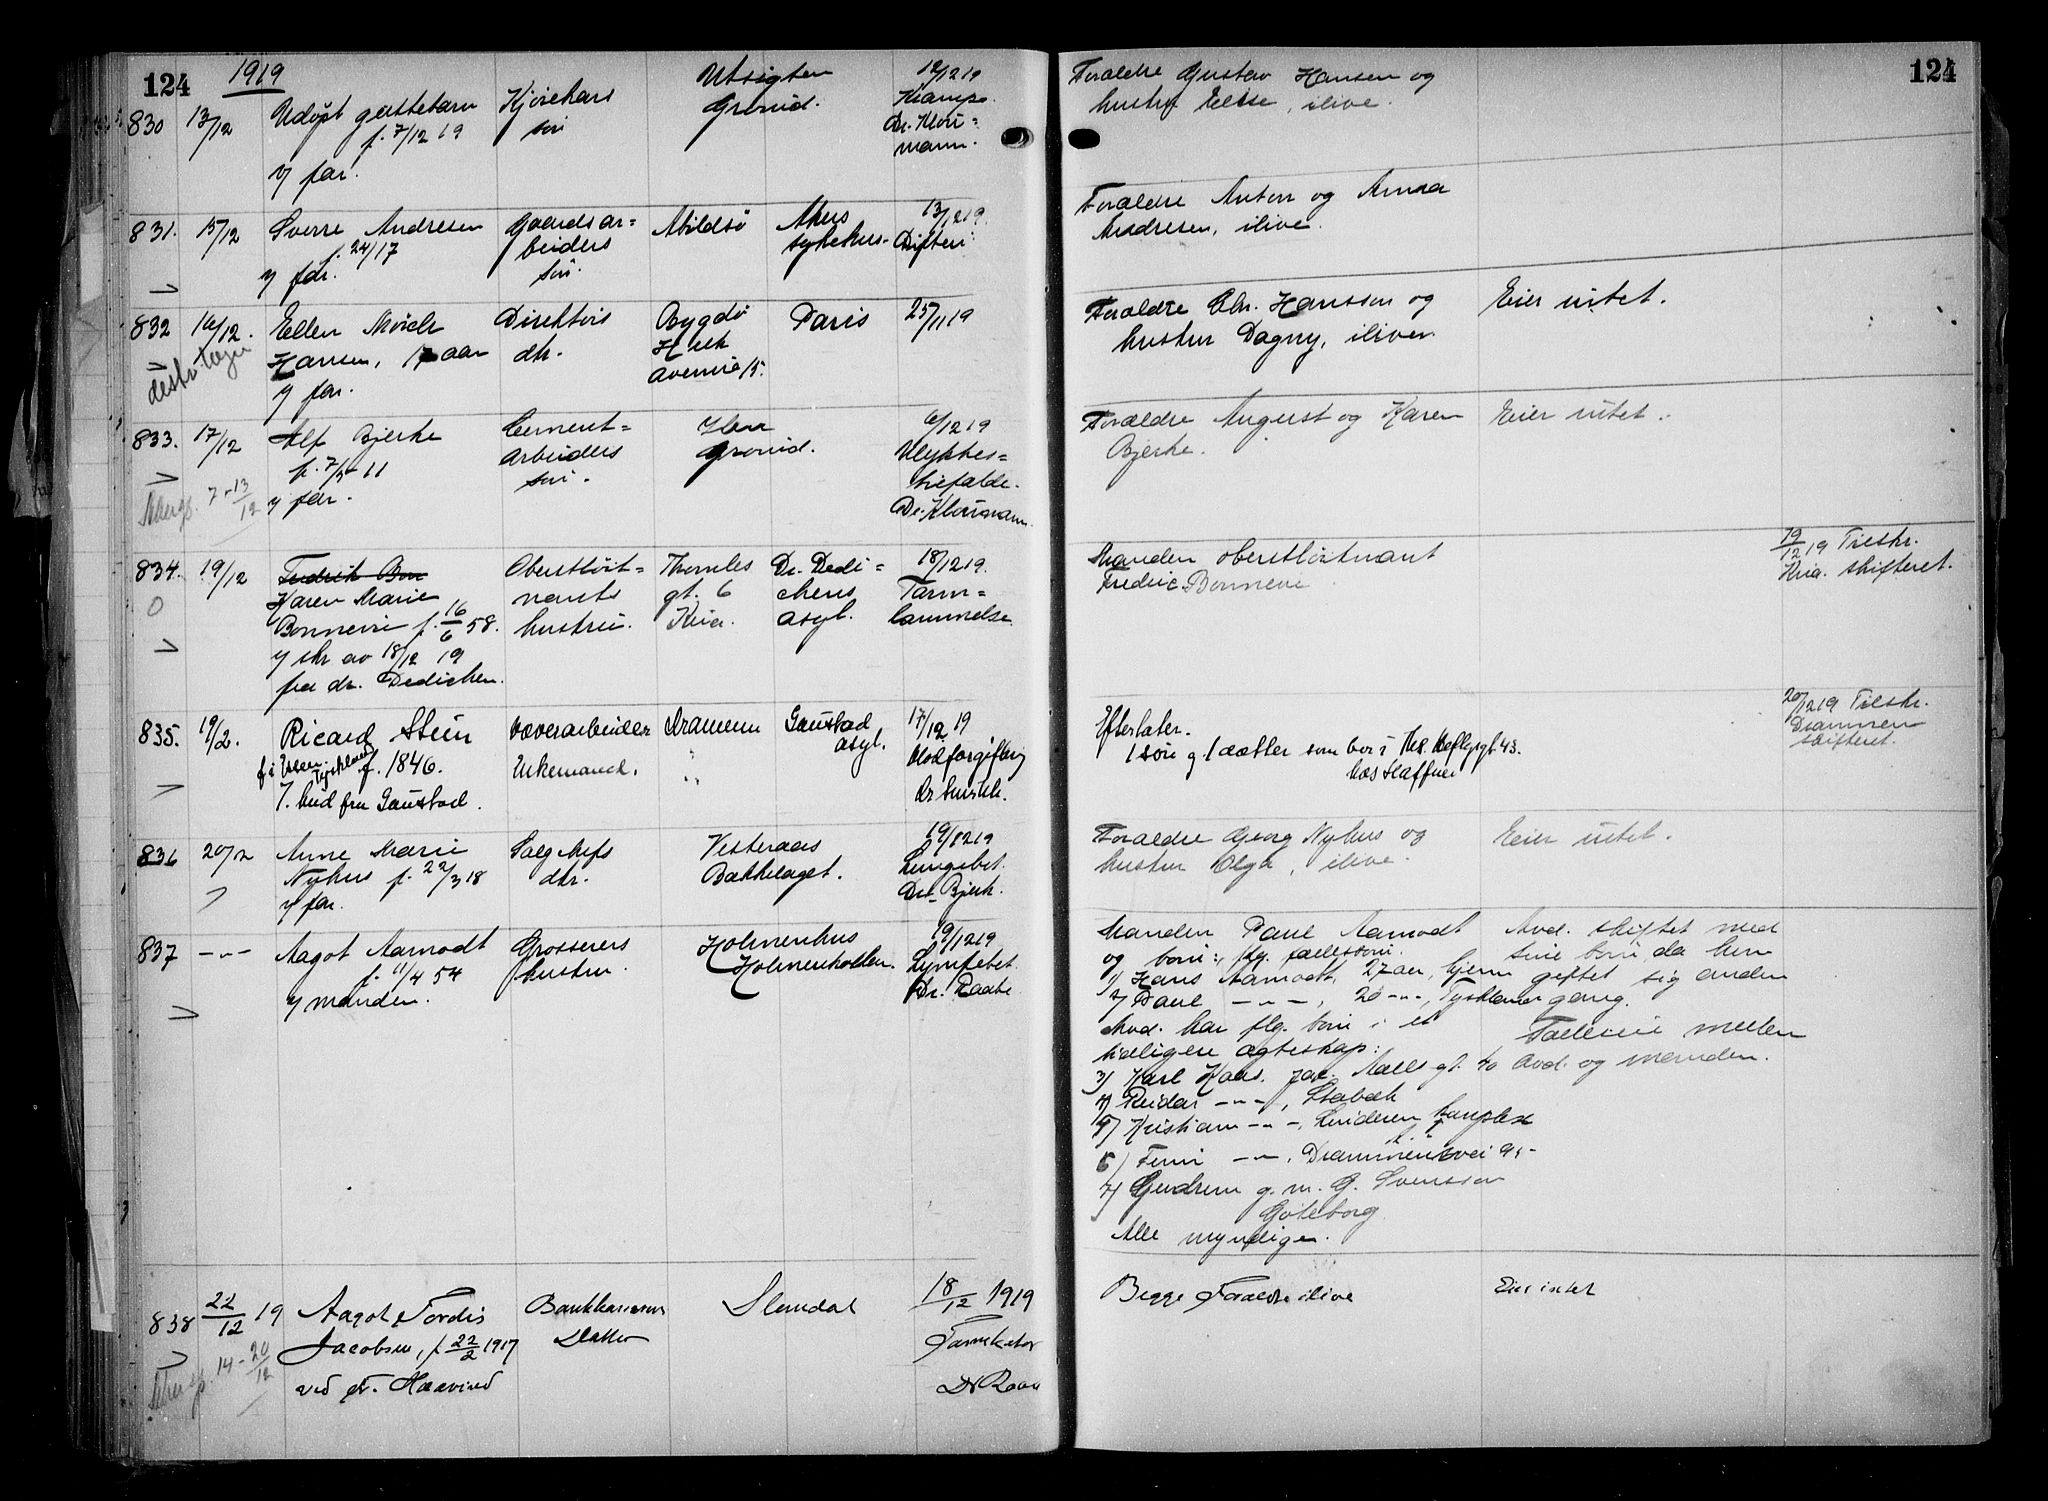 124
1919
124
830
13/12
Udøpt guttebarn
f. 7/12 19
v/ far.
Kjørekars
søn
Utsigten
Grorud.
12/12 19
Krampe.
Dr. Klou=
mann.
Forældre Gustav Hansen og
hustru Else, ilive.
831.
15/12
Sverre Andresen
f. 24/17
v/ far.
Gaardsar=
beiders
søn.
Abildsø
Akers
sykehus.
13/12 19.
Difteri.
Forældre Anton og Anna
Andresen, ilive.
832
16/12.
Ellen
Hansen, 17 aar
v/ far.
Direktørs
dtr.
Bygdø
Halk
avenue 15.
Paris
25/11 19
Forældre Chr. Hansson og
hustru Dagny, ilive.
Eier intet.
833.
17/12
Alf Bjerke
f. 7/5 - 11
v/ far.
Akersg. 7 - 13/12
Cement=
arbeiders
søn.
Grorud.
6/12 19
Ulykkes=
tilfælde.
Dr. Kloumann.
Forældre August og Karen
Bjerke.
Eier intet.
834.
0
19/12
Fredrik Bon
Karen Marie
Bonnevie f. 16/6 58.
v/ skr av 18/12 19
fra dr. Dedichen.
Oberstløit=
nants
hustru.
Thomles
gt. 6
Kria.
Dr. Dedi=
chens
asyl.
18/12 19.
Tarm=
lammelse
Manden oberstløitnant
Fredric Bonnevie
19/12 19 Tilskr.
Kria. skifteret.
835.
19/12.
Ricard Stein
f i Essen. Tyskland f. 1846.
v. bud fra Gaustad.
Væverarbeider
Enkemand.
Drammen
"
Gaustad
asyl.
17/12 19
Blodforgiftning
Efterlater.
1 søn og 1 datter som bor i
hos Haffner
20/12 19 Tilskr.
Drammen
skifteret.
836
20/12
Anne Marie
Nyhus f. 22/3 18
v/ far.
Salgschefs
dtr.
Vesteraas
Bækkelaget.
19/12 19
Lungebet.
Dr. Bjerk.
Forældre Georg Nyhus og
hustru Olga, ilive.
Eier intet.
837
-"-
Aagot Aamodt
f. 11/4 54
v/ manden.
Grosserers
hustru.
Holmenhus
Holmenkollen.
19/12 19
Lymfebet.
Dr. Raabe
Manden Paul Aamodt
og børn:, flg. fællesbørn:
1) Hans Aamodt, 27 aar, hjem
2/ Paul -"-, 20 -"-, Tyskland
Avd. har flg. børn i et
tidligere ægteskap:
3) Karl Haas. Jac. Aalls gt. 40
4) Reidar -"-, Stabæk
5) Kristian -"-, Linderen
6) Finn -"-, Drammensvei 95-
7/ Gudrun g. m. G. Svensson
Gøteborg
Alle myndige.
Avd. skiftet med
sine børn, da hun
giftet sig anden
gang.
Fælleseie mellem
avd. og manden.
838
22/12 19
Aagot Tordis
Jacobsen, f. 22/2 1917
ved fr. Haavind
Akersg. 14 - 20/12
Bankkasserer
Datter
Slemdal
18/12 1919
Tarmkatar
Dr Raabe
Begge Forældre ilive
Eier intet